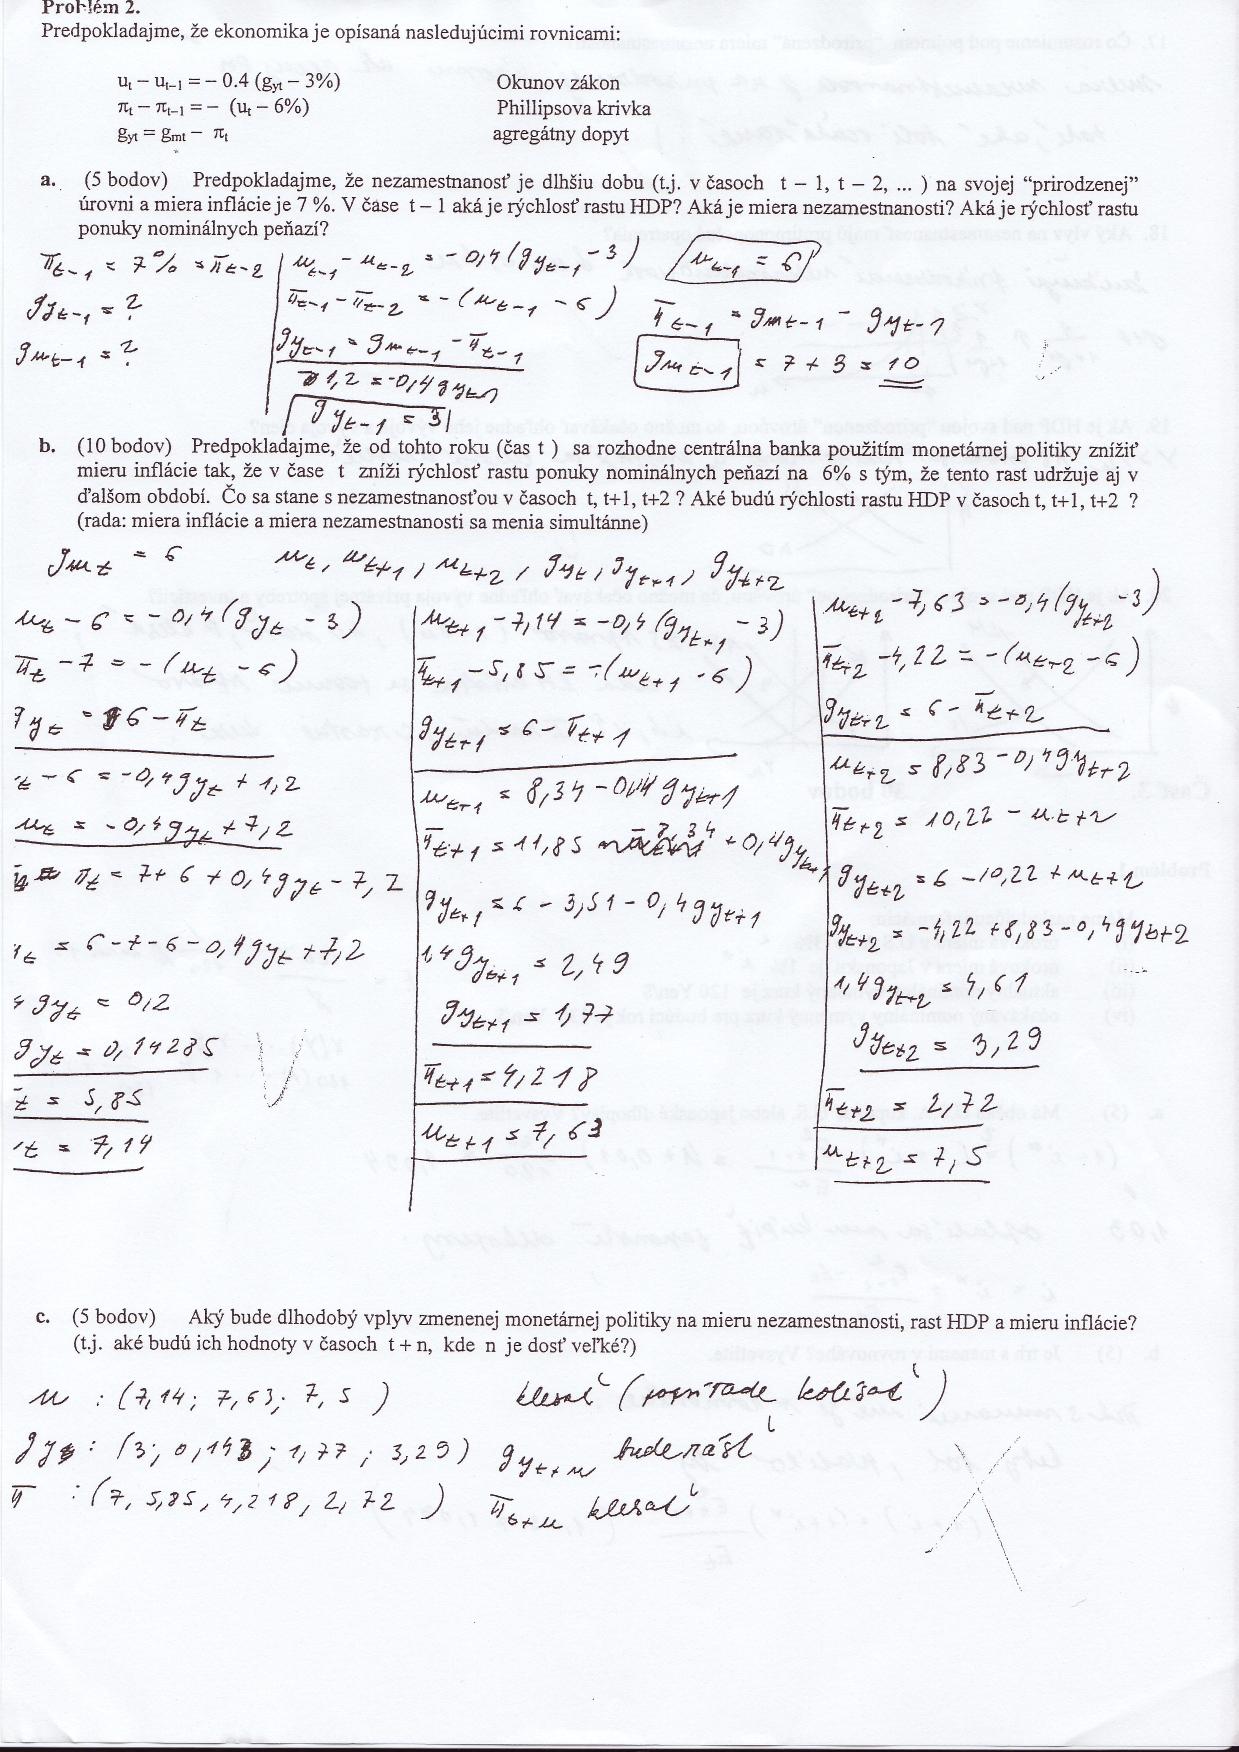 Problém 2.
Predpokladajme, že ekonomika je opísaná nasledujúcimi rovnicami:
uₜ – uₜ₋₁ = – 0.4 (gyt – 3%) Okunov zákon
πₜ – πₜ₋₁ = – (uₜ – 6%) Phillipsova krivka
gyt = gmt – πₜ agregátny dopyt
a. (5 bodov) Predpokladajme, že nezamestnanosť je dlhšiu dobu (t.j. v časoch t – 1, t – 2, ... ) na svojej “prirodzenej”
úrovni a miera inflácie je 7 %. V čase t – 1 aká je rýchlosť rastu HDP? Aká je miera nezamestnanosti? Aká je rýchlosť rastu
ponuky nominálnych peňazí?
πt-1 = 7% = πt-2
gyt-1 = ?
gmt-1 = ?
ut-1 - ut-2 = -0,4(gyt-1 - 3)
πt-1 - πt-2 = -(ut-1 - 6)
gyt-1 = gmt-1 - πt-1
1,2 = -0,4gyt-1
gyt-1 = 3
ut-1 = 6
πt-1 = gmt-1 - gyt-1
gmt-1 = 7 + 3 = 10
b. (10 bodov) Predpokladajme, že od tohto roku (čas t ) sa rozhodne centrálna banka použitím monetárnej politiky znížiť
mieru inflácie tak, že v čase t zníži rýchlosť rastu ponuky nominálnych peňazí na 6% s tým, že tento rast udržuje aj v
ďalšom období. Čo sa stane s nezamestnanosťou v časoch t, t+1, t+2 ? Aké budú rýchlosti rastu HDP v časoch t, t+1, t+2 ?
(rada: miera inflácie a miera nezamestnanosti sa menia simultánne)
gmt = 6 ut, ut+1, ut+2, gyt, gyt+1, gyt+2
ut - 6 = -0,4(gyt - 3)
πt - 7 = -(ut - 6)
gyt = 6 - πt
t - 6 = -0,4gyt + 1,2
ut = -0,4gyt + 7,2
πt = 7 + 6 + 0,4gyt - 7,2
t = 6 - 7 - 6 - 0,4gyt + 7,2
4gyt = 0,2
gyt = 0,14285
t = 5,85
t = 7,14
ut+1 - 7,14 = -0,4(gyt+1 - 3)
πt+1 - 5,85 = -(ut+1 - 6)
gyt+1 = 6 - πt+1
ut+1 = 8,34 - 0,4gyt+1
πt+1 = 11,85 - 8,34 + 0,4gyt+1
gyt+1 = 6 - 3,51 - 0,4gyt+1
1,4gyt+1 = 2,49
gyt+1 = 1,77
πt+1 = 4,218
ut+1 = 7,63
ut+2 - 7,63 = -0,4(gyt+2 - 3)
πt+2 - 4,22 = -(ut+2 - 6)
gyt+2 = 6 - πt+2
ut+2 = 8,83 - 0,4gyt+2
πt+2 = 10,22 - ut+2
gyt+2 = 6 - 10,22 + ut+2
gyt+2 = -4,22 + 8,83 - 0,4gyt+2
1,4gyt+2 = 4,61
gyt+2 = 3,29
πt+2 = 2,72
ut+2 = 7,5
c. (5 bodov) Aký bude dlhodobý vplyv zmenenej monetárnej politiky na mieru nezamestnanosti, rast HDP a mieru inflácie?
(t.j. aké budú ich hodnoty v časoch t + n, kde n je dosť veľké?)
u : (7,14; 7,63; 7,5) klesať ( kolísať)
gy : (3; 0,143; 1,77; 3,29) gyt+n bude rásť
π : (7, 5,85, 4,218, 2,72) πt+n klesať